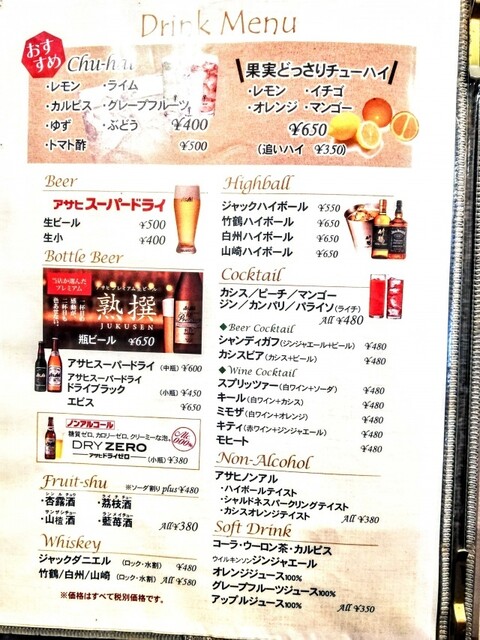 Drink Menu
おすすめ
Chu-hai
・レモン ・ライム
・カルピス ・グレープフルーツ
・ゆず ・ぶどう ¥400
・トマト酢 ¥500
果実どっさりチューハイ
・レモン ・イチゴ
・オレンジ ・マンゴー
¥650
(追いハイ ¥350)
Beer
アサヒスーパードライ
生ビール ¥500
生小 ¥400
Bottle Beer
当店が選んだ
プレミアム
アサヒプレミアム生ビール
熟撰
JUKUSEN
瓶ビール ¥650
アサヒスーパードライ (中瓶) ¥600
アサヒスーパードライ
ドライブラック (小瓶) ¥450
エビス ¥650
ノンアルコール
糖質ゼロ、カロリーゼロ、クリーミーな泡。
DRY ZERO
アサヒドライゼロ
(小瓶) ¥380
Fruit-shu ※ソーダ割り plus¥480
シンルチュウ ライチチュウ
・杏露酒 ・茘枝酒
サンザシチュウ ランメイチュウ
・山樝酒 ・藍苺酒 All¥380
Whiskey
ジャックダニエル (ロック・水割) ¥480
竹鶴/白州/山崎 (ロック・水割) All ¥580
※価格はすべて税別価格です。
Highball
ジャックハイボール ¥550
竹鶴ハイボール ¥650
白州ハイボール ¥650
山崎ハイボール ¥650
Cocktail
カシス/ピーチ/マンゴー
ジン/カンパリ/パライソ(ライチ)
All ¥480
◆Beer Cocktail
シャンディガフ(ジンジャエール+ビール) ¥480
カシスビア(カシス+ビール) ¥480
◆Wine Cocktail
スプリッツァー(白ワイン+ソーダ) ¥480
キール(白ワイン+カシス) ¥480
ミモザ(白ワイン+オレンジ) ¥480
キティ(赤ワイン+ジンジャエール) ¥480
モヒート ¥480
Non-Alcohol
アサヒノンアル
・ハイボールテイスト
・シャルドネスパークリングテイスト
・カシスオレンジテイスト All ¥380
Soft Drink
コーラ・ウーロン茶・カルピス
ウイルキンソンジンジャエール
オレンジジュース100%
グレープフルーツジュース100%
アップルジュース100% All ¥350